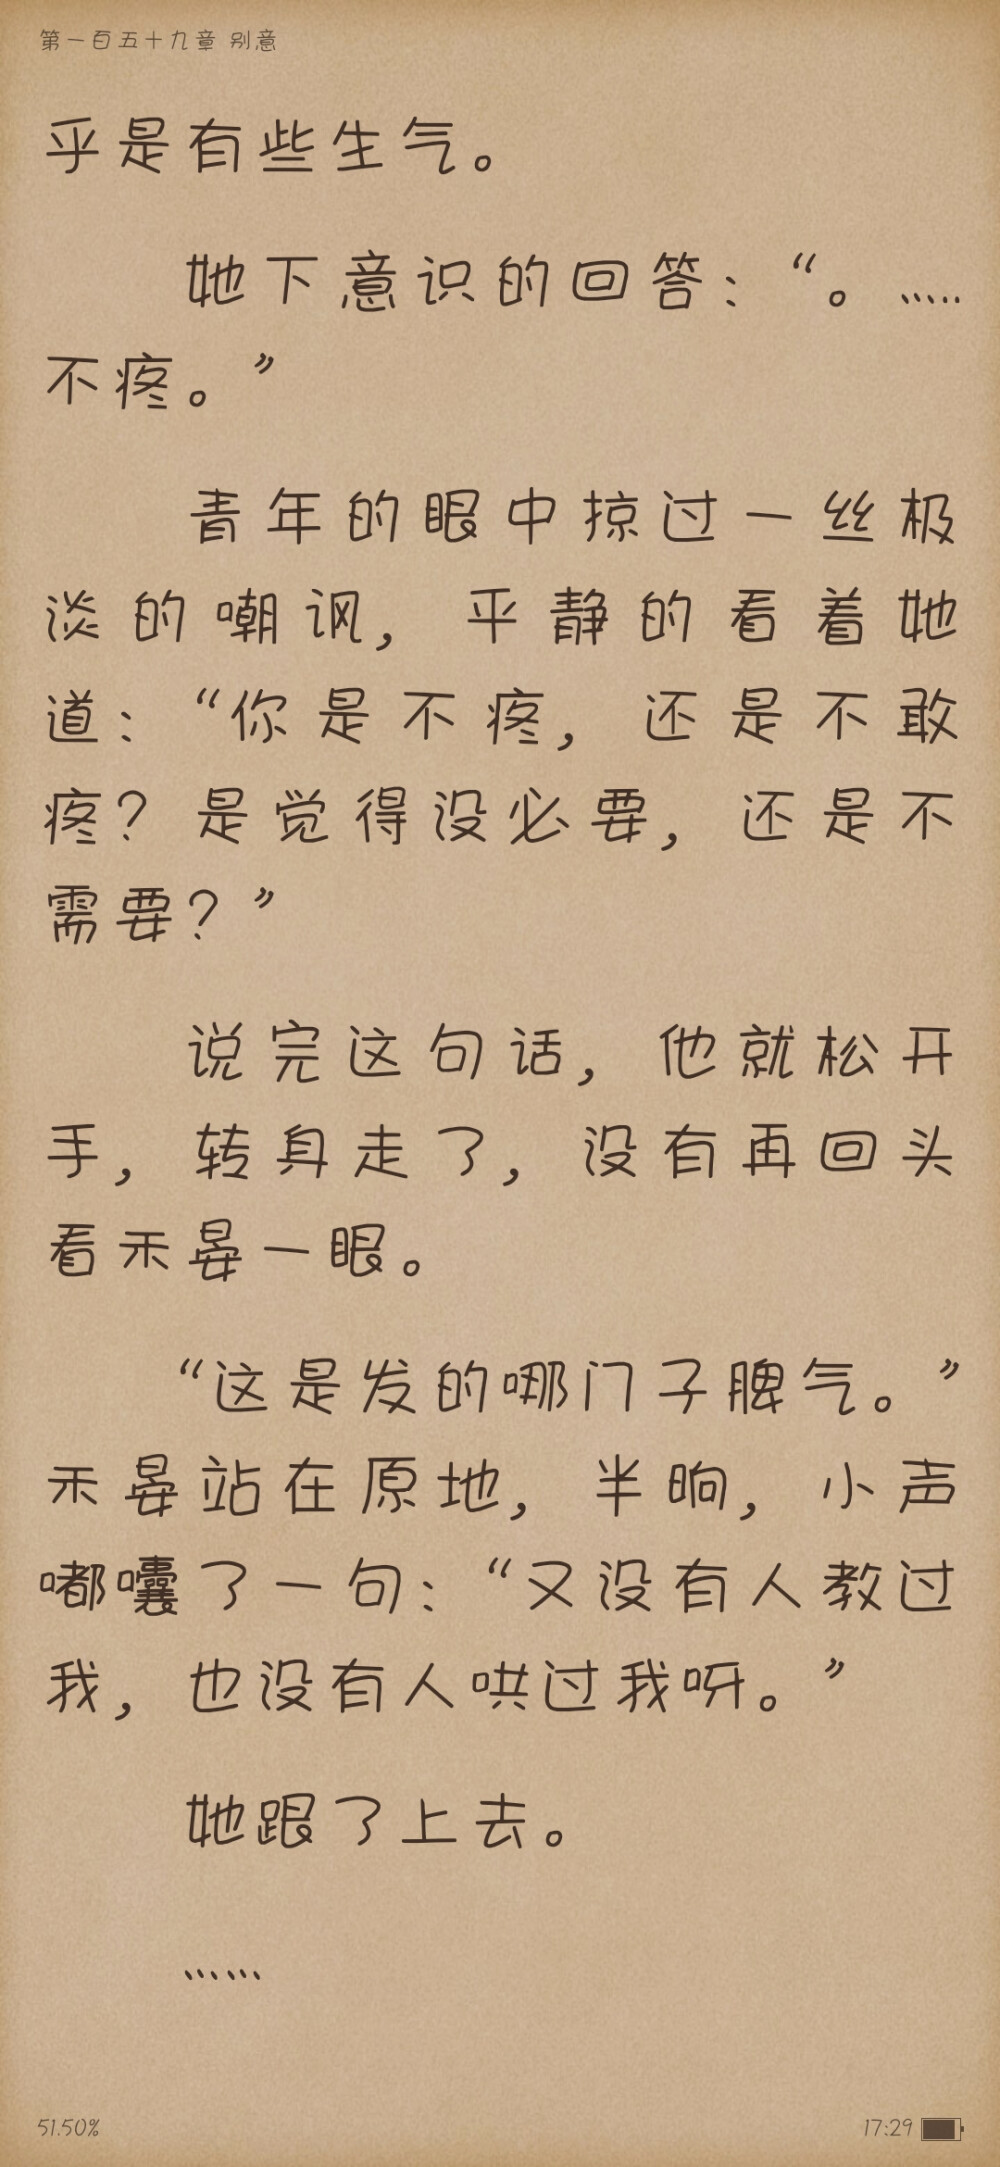 第一百五十九章 别意
乎是有些生气。
她下意识的回答：“。……
不疼。”
青年的眼中掠过一丝极
淡的嘲讽，平静的看着她
道：“你是不疼，还是不敢
疼？是觉得没必要，还是不
需要？”
说完这句话，他就松开
手，转身走了，没有再回头
看禾晏一眼。
“这是发的哪门子脾气。”
禾晏站在原地，半晌，小声
嘟囔了一句：“又没有人教过
我，也没有人哄过我呀。”
她跟了上去。
……
51.50%
17:29